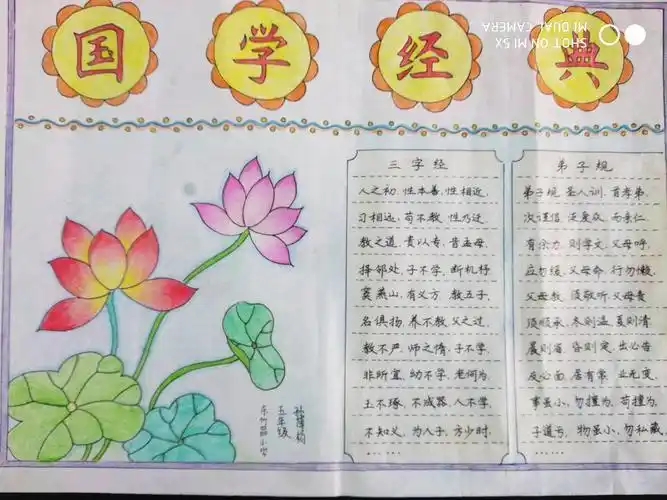 国学经典
SHOT ON MI 5X
MI DUAL CAMERA
三字经
人之初，性本善，性相近，
习相远，苟不教，性乃迁，
教之道，贵以专，昔孟母，
择邻处，子不学，断机杼，
窦燕山，有义方，教五子，
名俱扬，养不教，父之过，
教不严，师之惰，子不学，
非所宜，幼不学，老何为，
玉不琢，不成器，人不学，
不知义，为人子，方少时，
……
弟子规
弟子规，圣人训，首孝弟，
次谨信，泛爱众，而亲仁，
有余力，则学文，父母呼，
应勿缓，父母命，行勿懒，
父母教，须敬听，父母责，
须顺承，冬则温，夏则清，
晨则省，昏则定，出必告，
反必面，居有常，业无变，
事虽小，勿擅为，苟擅为，
子道亏，物虽小，勿私藏，
……
五年级